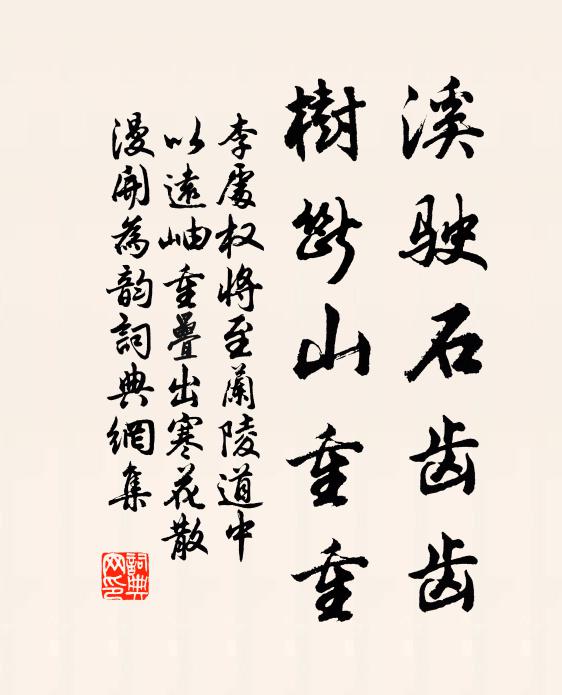 溪駛石齿齿
樹斷山重重
李處权將至蘭陵道中
以遠岫重疊出寒花散
漫開為韵詞典網集
詞典
网印